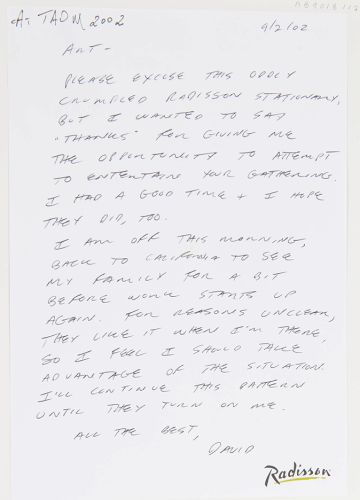 At TAOM 2002
9/2/02
ART-
PLEASE EXCUSE THIS ODDLY
CRUMPLED RADISSON STATIONARY,
BUT I WANTED TO SAY
"THANKS" FOR GIVING ME
THE OPPORTUNITY TO ATTEMPT
TO ENTERTAIN YOUR GATHERING.
I HAD A GOOD TIME & I HOPE
THEY DID, TOO.
I AM OFF THIS MORNING,
BACK TO CALIFORNIA TO SEE
MY FAMILY FOR A BIT
BEFORE WORK STARTS UP
AGAIN. FOR REASONS UNCLEAR,
THEY LIKE IT WHEN I'M THERE,
SO I FEEL I SHOULD TAKE
ADVANTAGE OF THE SITUATION.
I'LL CONTINUE THIS PATTERN
UNTIL THEY TURN ON ME.
ALL THE BEST,
DAVID
Radisson